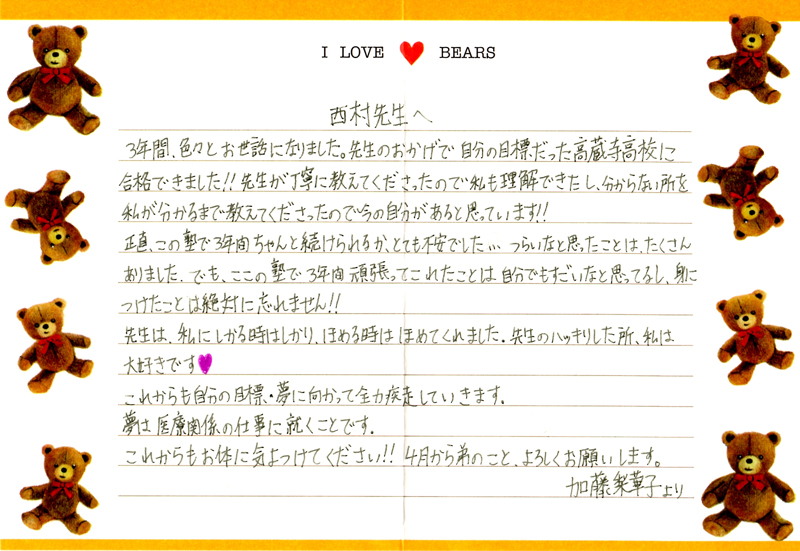 I LOVE ❤ BEARS
西村先生へ
3年間、色々とお世話になりました。先生のおかげで自分の目標だった高蔵寺高校に
合格できました!! 先生が丁寧に教えてくださったので私も理解できたし、分からない所を
私が分かるまで教えてくださったので今の自分があると思っています!!
正直、この塾で3年間ちゃんと続けられるか、とても不安でした… つらいなと思ったことは、たくさん
ありました。でも、ここの塾で3年間頑張ってこれたことは自分でもすごいなと思ってるし、身に
つけたことは絶対に忘れません!!
先生は、私にしかる時はしかり、ほめる時はほめてくれました。先生のハッキリした所、私は
大好きです♥
これからも自分の目標・夢に向かって全力疾走していきます。
夢は医療関係の仕事に就くことです。
これからもお体に気よつけてください!! 4月から弟のこと、よろしくお願いします。
加藤梨華子より